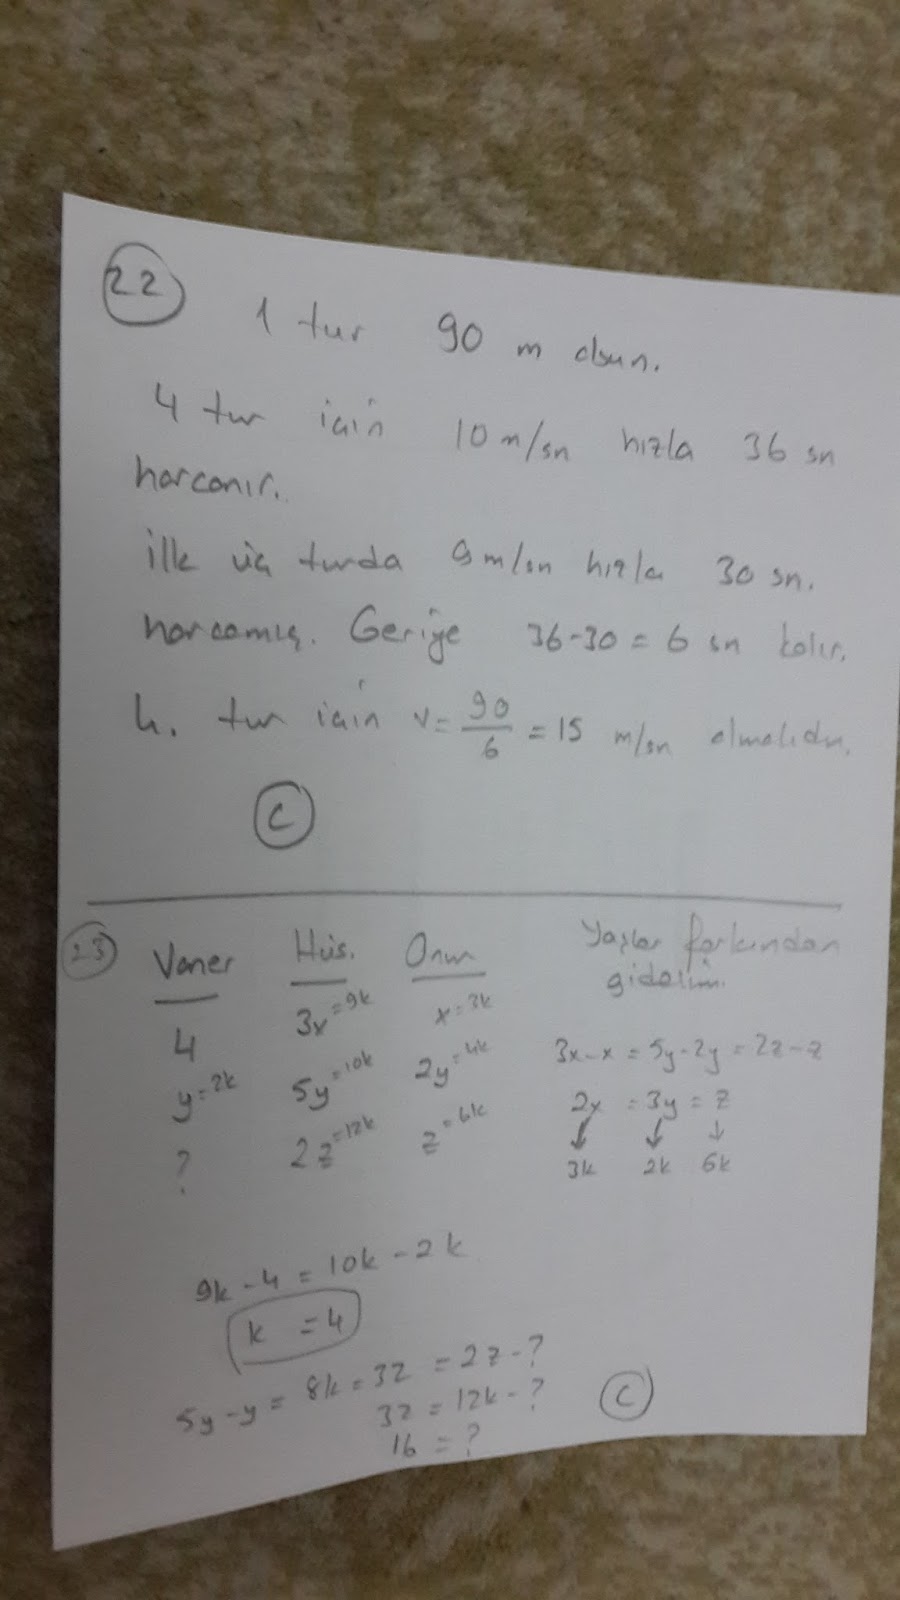 22
1 tur 90 m olsun.
4 tur için 10 m/sn hızla 36 sn
harcanır.
ilk üç turda 9 m/sn hızla 30 sn.
harcamış. Geriye 36-30 = 6 sn kalır.
4. tur için v = 90/6 = 15 m/sn olmalıdır.
C
23 Vaner Hüs. Onur Yaşlar farkından
gidelim.
4 3x=9k x=3k
y=2k 5y=10k 2y=4k 3x-x = 5y-2y = 2z-z
? 2z=12k z=6k 2x = 3y = z
↓ ↓ ↓
3k 2k 6k
9k-4 = 10k-2k
k = 4
5y-y = 8k = 32 = 2z-?
32 = 12k-? C
16 = ?